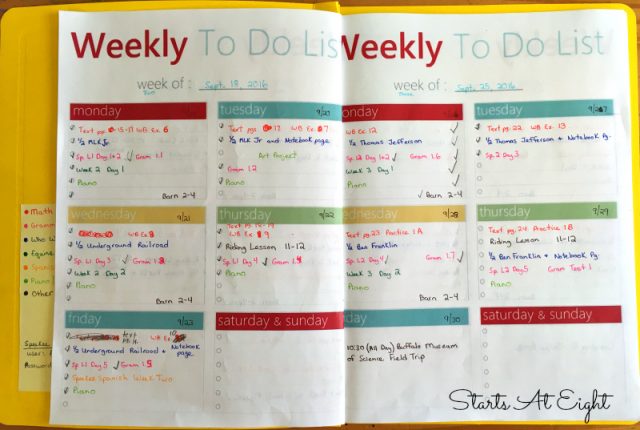 Weekly To Do List
week of : Sept. 18, 2016
monday
Text pgs 15-17 WB Ex. 6
1/2 MLK Jr.
Sp L1 Day 1+2 Gram 1.1
Week 2 Day 1
Piano
Barn 2-4
tuesday 9/20
Text pgs WB Ex. 7
1/2 MLK Jr and Notebook page
Art Project
Gram 1.2
Piano
wednesday 9/21
WB Ex 8
1/2 Underground Railroad
Sp L1 Day 3 Gram
Week 2 Day 2
Piano
Barn 2-4
thursday 9/22
WB Ex 9
Riding Lesson 11-12
Sp L1 Day 4 Gram
Piano
friday 9/23
WB Ex 10
1/2 Underground Railroad + Notebook page
Sp L1 Day 5 Gram
Speekee Spanish Week Two
Piano
saturday & sunday
Math
Gramm
Who W
Equine
Spanis
Piano
Other
Speekee
Password
Weekly To Do List
week of : Sept. 25, 2016
monday
WB Ex. 12
1/2 Thomas Jefferson
Sp L2 Day 1+2 Gram 1.6
Week 3 Day 1
Piano
Barn 2-4
tuesday 9/27
Text pg. 22 WB Ex. 13
1/2 Thomas Jefferson + Notebook Pg.
Sp L2 Day 3
wednesday 9/28
Text pg. 23 Practice 1A
1/2 Ben Franklin
Sp L2 Day 4 Gram 1.7
Week 3 Day 2
Piano
Barn 2-4
thursday 9/29
Text pg. 24 Practice 1B
Riding Lesson 11-12
1/2 Ben Franklin + Notebook Pg.
Sp L2 Day 5 Gram Test 1
Piano
friday 9/30
10:30 (All Day) Buffalo Museum
of Science Field Trip
saturday & sunday
Starts At Eight